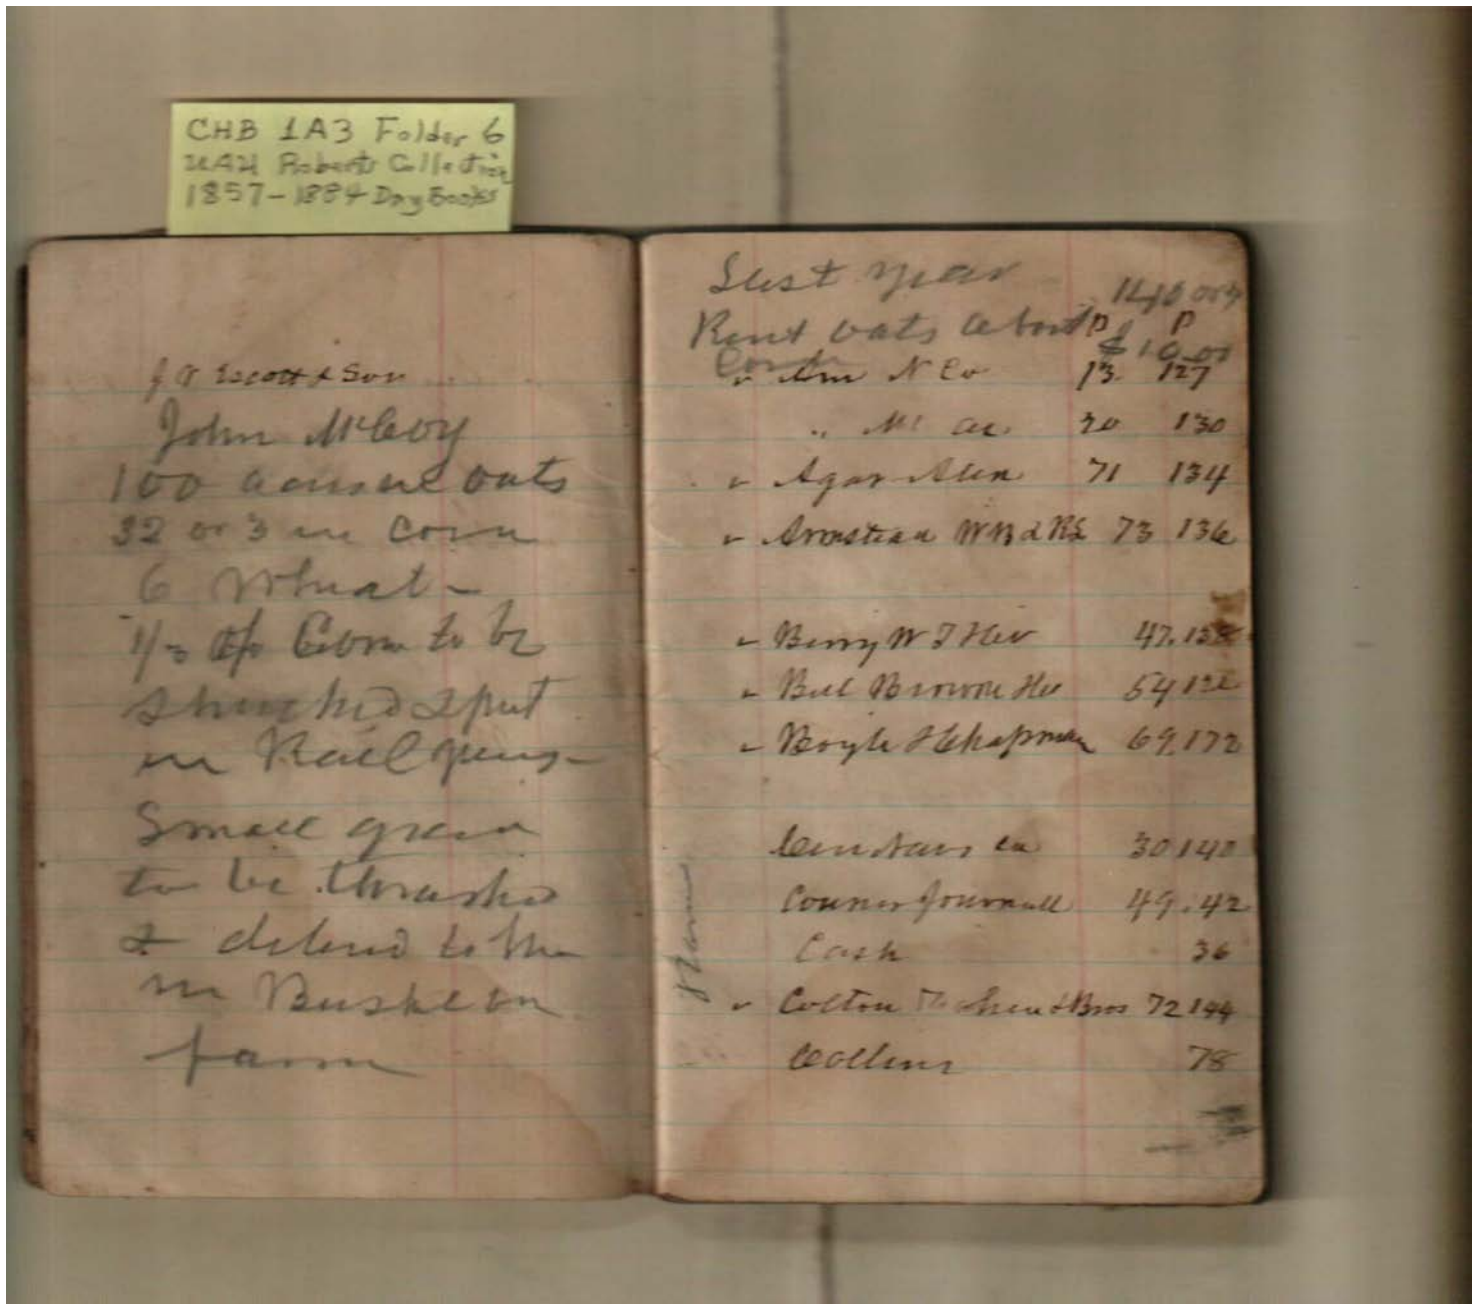 CHB 1A3 Folder 6
UAH Roberts Collection
1857-1884 Day Books
J P Escott & Son
John McCoy
100 in oats
32 or 3 in Corn
6 Wheat -
1/3 of Corn to be
shucked & put
in Rail pens -
Small grain
to be thrashed
& deliverd to me
in Bushel on
farm
Last year
Rent oats about
$10.00
Corn
P P
Am N Co 13 127
" 20 130
Agar Alen 71 134
Armstead WB & RS 73 136
Berry W T & Co 47.
Bell Browne 54
Boyle & Chapman 69.172
30 140
Courier Journall 49.42
Cash 36
Colton & Bros 72 144
Collins 78